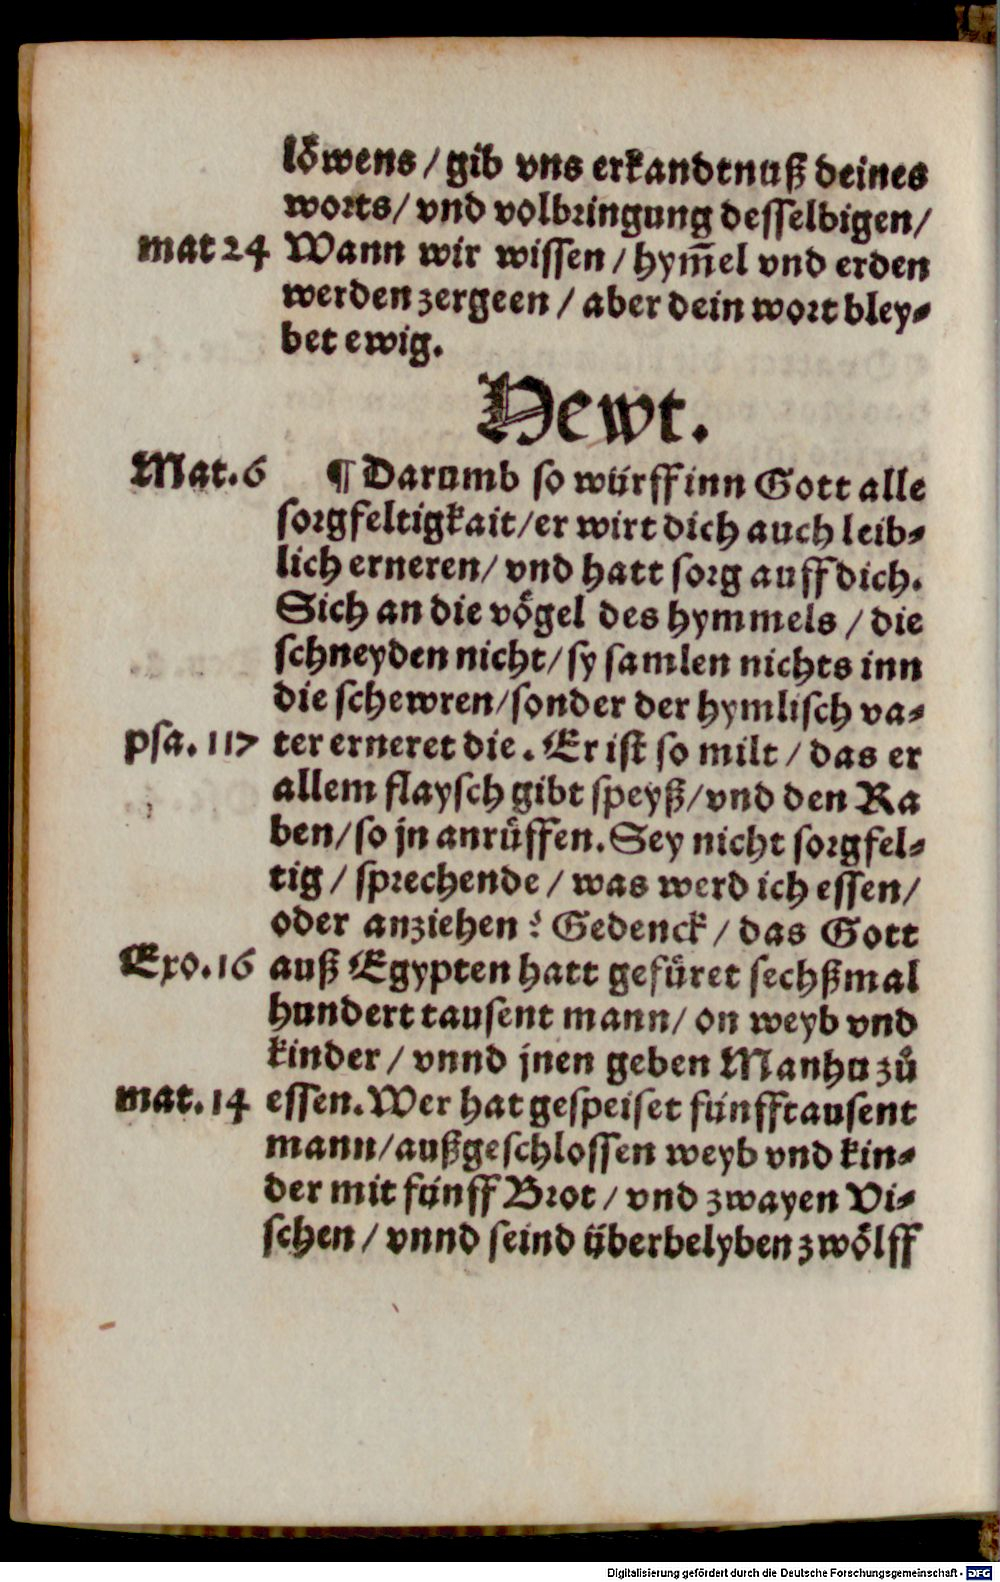 loͤwens / gib vns erkandtnuß deines
worts / vnd volbringung desselbigen /
mat 24 Wann wir wissen / hym̃el vnd erden
werden zergeen / aber dein wort bley⸗
bet ewig.
Hewt.
Mat. 6 ¶ Darumb so wuͤrff inn Gott alle
sorgfeltigkait / er wirt dich auch leib⸗
lich erneren / vnd hatt sorg auff dich.
Sich an die voͤgel des hymmels / die
schneyden nicht / sy samlen nichts inn
die schewren / sonder der hymlisch va⸗
psa. 117 ter erneret die. Er ist so milt / das er
allem flaysch gibt speyß / vnd den Ra
ben / so jn anruͤffen. Sey nicht sorgfel⸗
tig / sprechende / was werd ich essen /
oder anziehen? Gedenck / das Gott
Exo. 16 auß Egypten hatt gefuͤret sechßmal
hundert tausent mann / on weyb vnd
kinder / vnnd jnen geben Manhu zuͦ
mat. 14 essen. Wer hat gespeiset fünfftausent
mann / außgeschlossen weyb vnd kin⸗
der mit fünff Brot / vnd zwayen Vi⸗
schen / vnnd seind überbelyben zwoͤlff
Digitalisierung gefördert durch die Deutsche Forschungsgemeinschaft - DFG